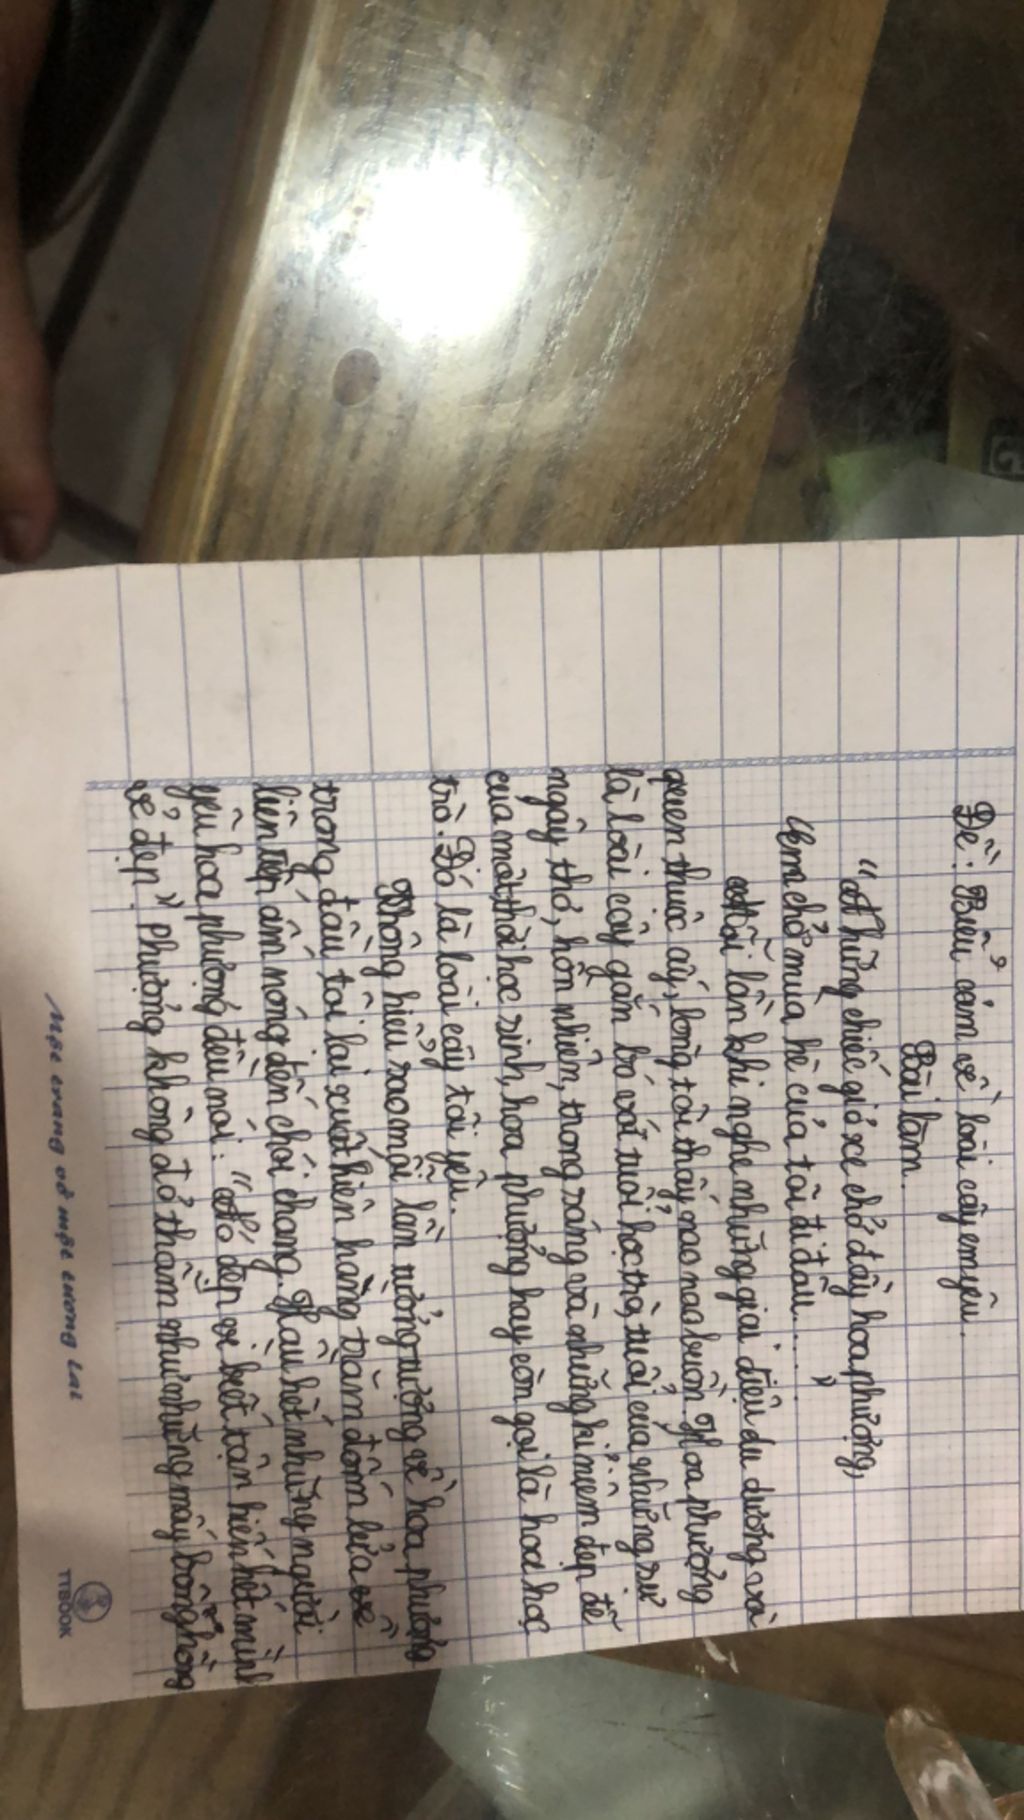 Đề: Biểu cảm về loài cây em yêu.
Bài làm.
"Những chiếc giỏ xe chở đầy hoa phượng,
Em chở mùa hè của tôi đi đâu....."
Mỗi lần khi nghe những giai điệu du dương và
quen thuộc ấy, lòng tôi thấy nao nao buồn. Hoa phượng
là loài cây gắn bó với tuổi học trò, tuổi của những sự
ngây thơ, hồn nhiên, trong sáng và những kỉ niệm đẹp đẽ
của một thời học sinh, hoa phượng hay còn gọi là hoa học
trò. Đó là loài cây tôi yêu.
Không hiểu sao mỗi lần tưởng tượng về hoa phượng
trong đầu tôi lại xuất hiện hàng trăm đốm lửa
liên tiếp ấm nóng đến chói chang. Hầu hết những người
yêu hoa phượng đều nói: "Nó đẹp vì biết tận hiến hết mình
vẻ đẹp" phượng không đỏ thắm như những mấy bông hồng
ở
Một trang vở một tương lai
TTBOOK